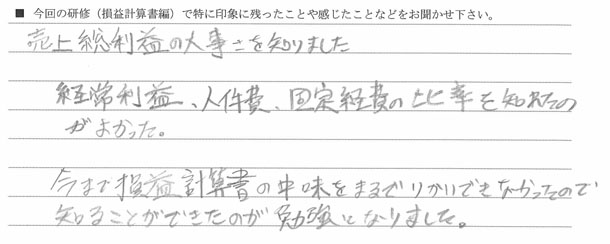 ■ 今回の研修（損益計算書編）で特に印象に残ったことや感じたことなどをお聞かせ下さい。
売上総利益の大事さを知りました
経常利益、人件費、固定経費の比率を知れたの
がよかった。
今まで損益計算書の中味をまるでりかいできなかったので
知ることができたのが勉強になりました。